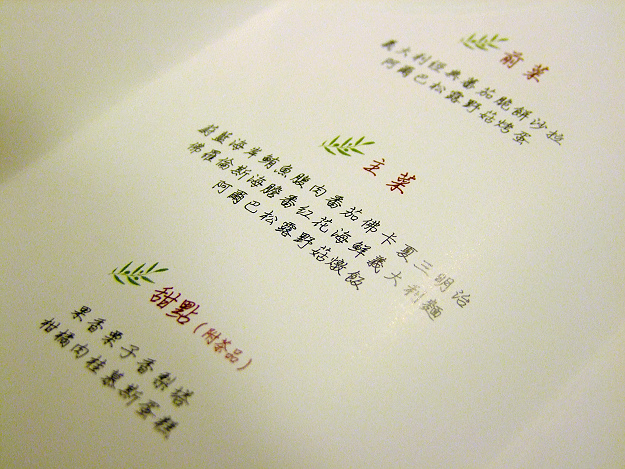 前菜
義大利經典蕃茄脆餅沙拉
阿爾巴松露野菇烤蛋
主菜
蔚藍海岸鮪魚腹肉番茄佛卡夏三明治
佛羅倫斯海膽番紅花海鮮義大利麵
阿爾巴松露野菇燉飯
甜點(附茶品)
果香栗子香梨塔
柑橘肉桂慕斯蛋糕